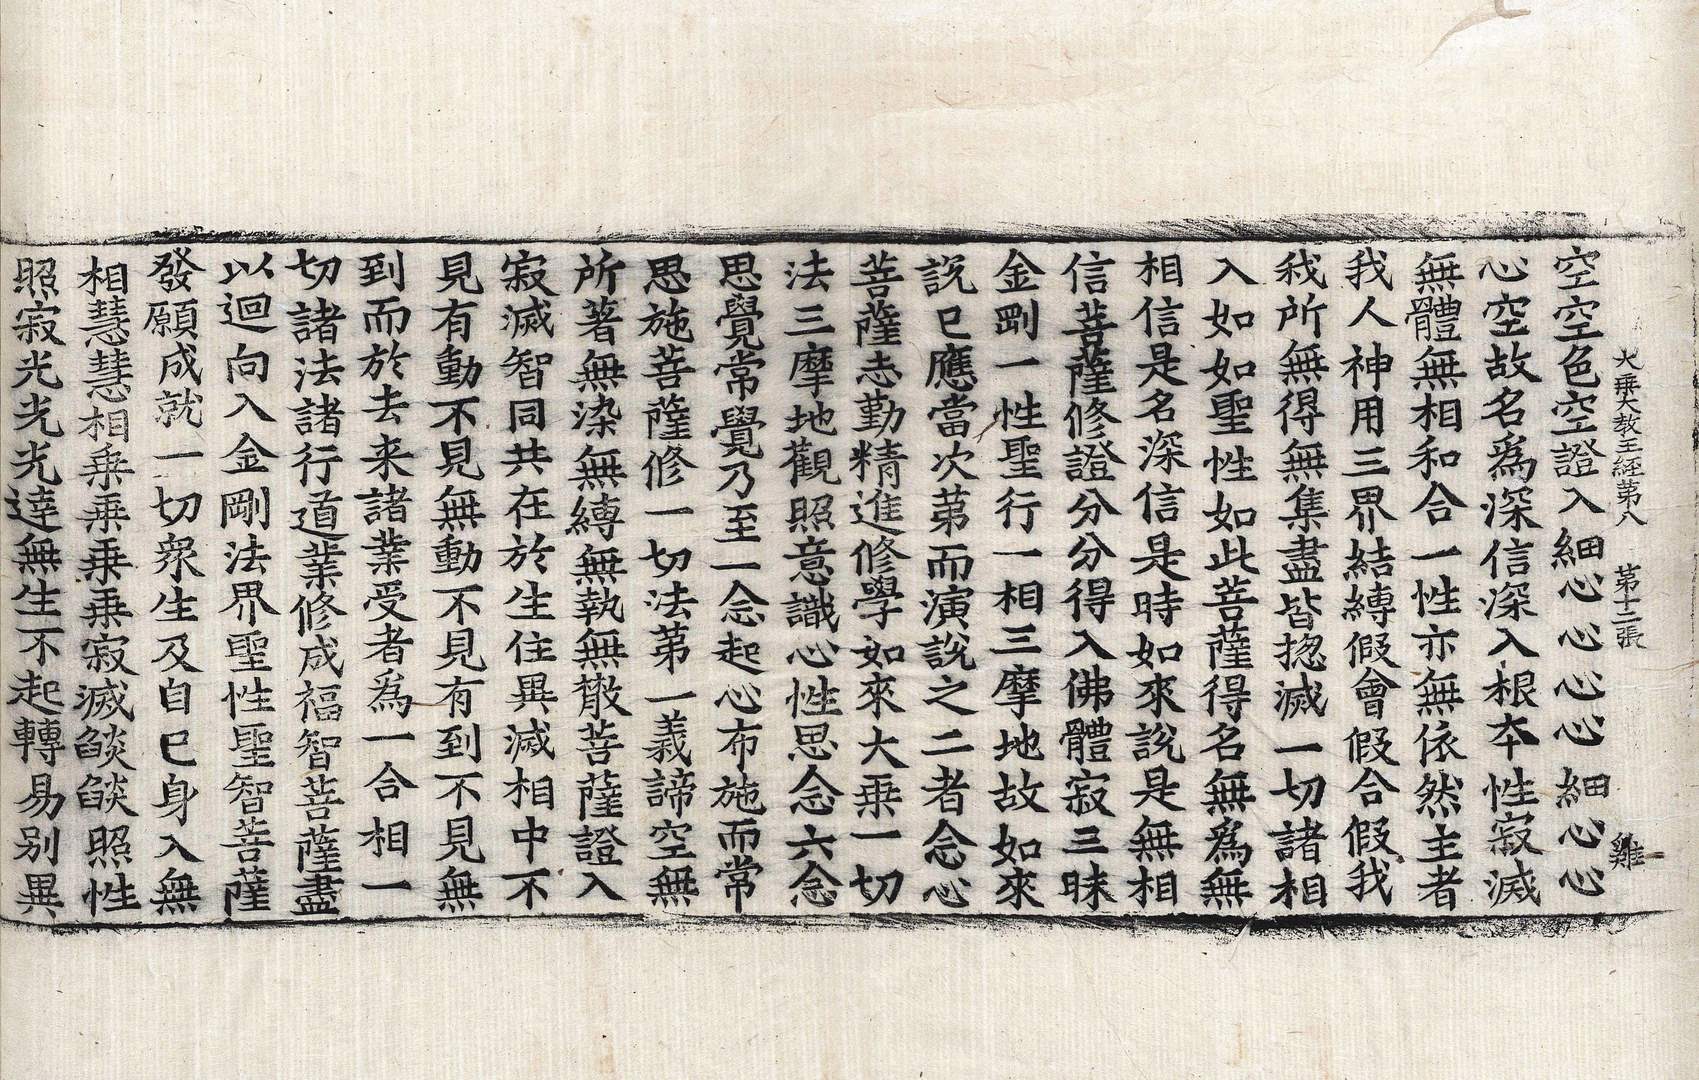 大乘大教王經第八　第十二張　難
空空色空證入細心心心心細心心
心空故名爲深信深入根本性寂滅
無體無相和合一性亦無依然主者
我人神用三界結縛假會假合假我
我所無得無集盡皆揔滅一切諸相
入如如聖性如此菩薩得名無爲無
相信是名深信是時如來說是無相
信菩薩修證分分得入佛體寂三昧
金剛一性聖行一相三摩地故如來
說已應當次第而演說之二者念心
菩薩志勤精進修學如來大乘一切
法三摩地觀照意識心性思念六念
思覺常覺乃至一念起心布施而常
思施菩薩修一切法第一義諦空無
所著無染無縛無執無散菩薩證入
寂滅智同共在於生住異滅相中不
見有動不見無動不見有到不見無
到而於去来諸業受者爲一合相一
切諸法諸行道業修成福智菩薩盡
以迴向入金剛法界聖性聖智菩薩
發願成就一切衆生及自己身入無
相慧慧相乘乘乘乘寂滅燄燄照性
照寂光光光達無生不起轉易別異